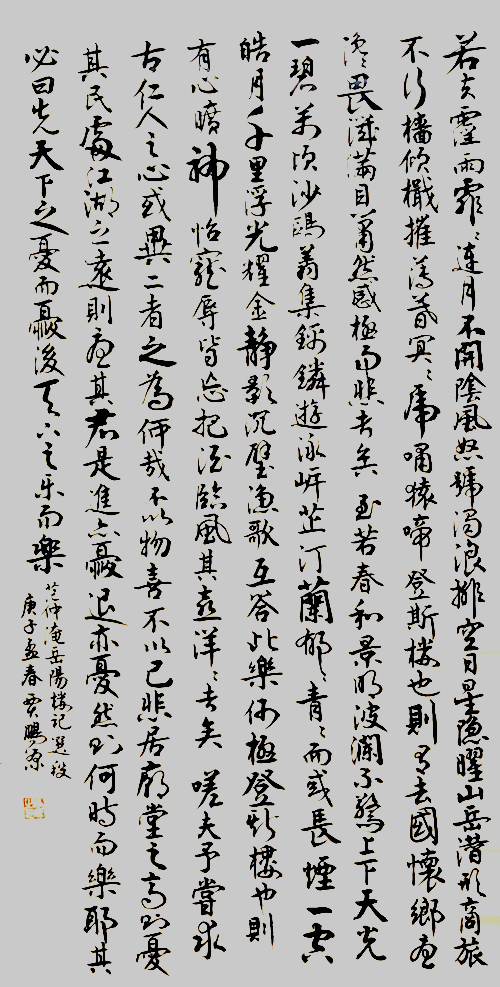 若夫霪雨霏〻連月不開陰風怒號濁浪排空日星隱曜山岳潛形商旅
不行檣傾檝摧薄暮冥〻虎嘯猿啼登斯樓也則有去國懷鄉憂
讒畏譏滿目蕭然感極而悲者矣 至若春和景明波瀾不驚上下天光
一碧萬頃沙鷗翔集錦鱗遊泳岸芷汀蘭郁〻青〻而或長煙一空
皓月千里浮光耀金靜影沉璧漁歌互答此樂何極登斯樓也則
有心曠神怡寵辱皆忘把酒臨風其喜洋〻者矣 嗟夫予嘗求
古仁人之心或異二者之為何哉不以物喜不以己悲居廟堂之高則憂
其民處江湖之遠則憂其君是進亦憂退亦憂然則何時而樂耶其
必曰先天下之憂而憂後天下之樂而樂
范仲淹岳陽樓記選段
庚子孟春賈鵬